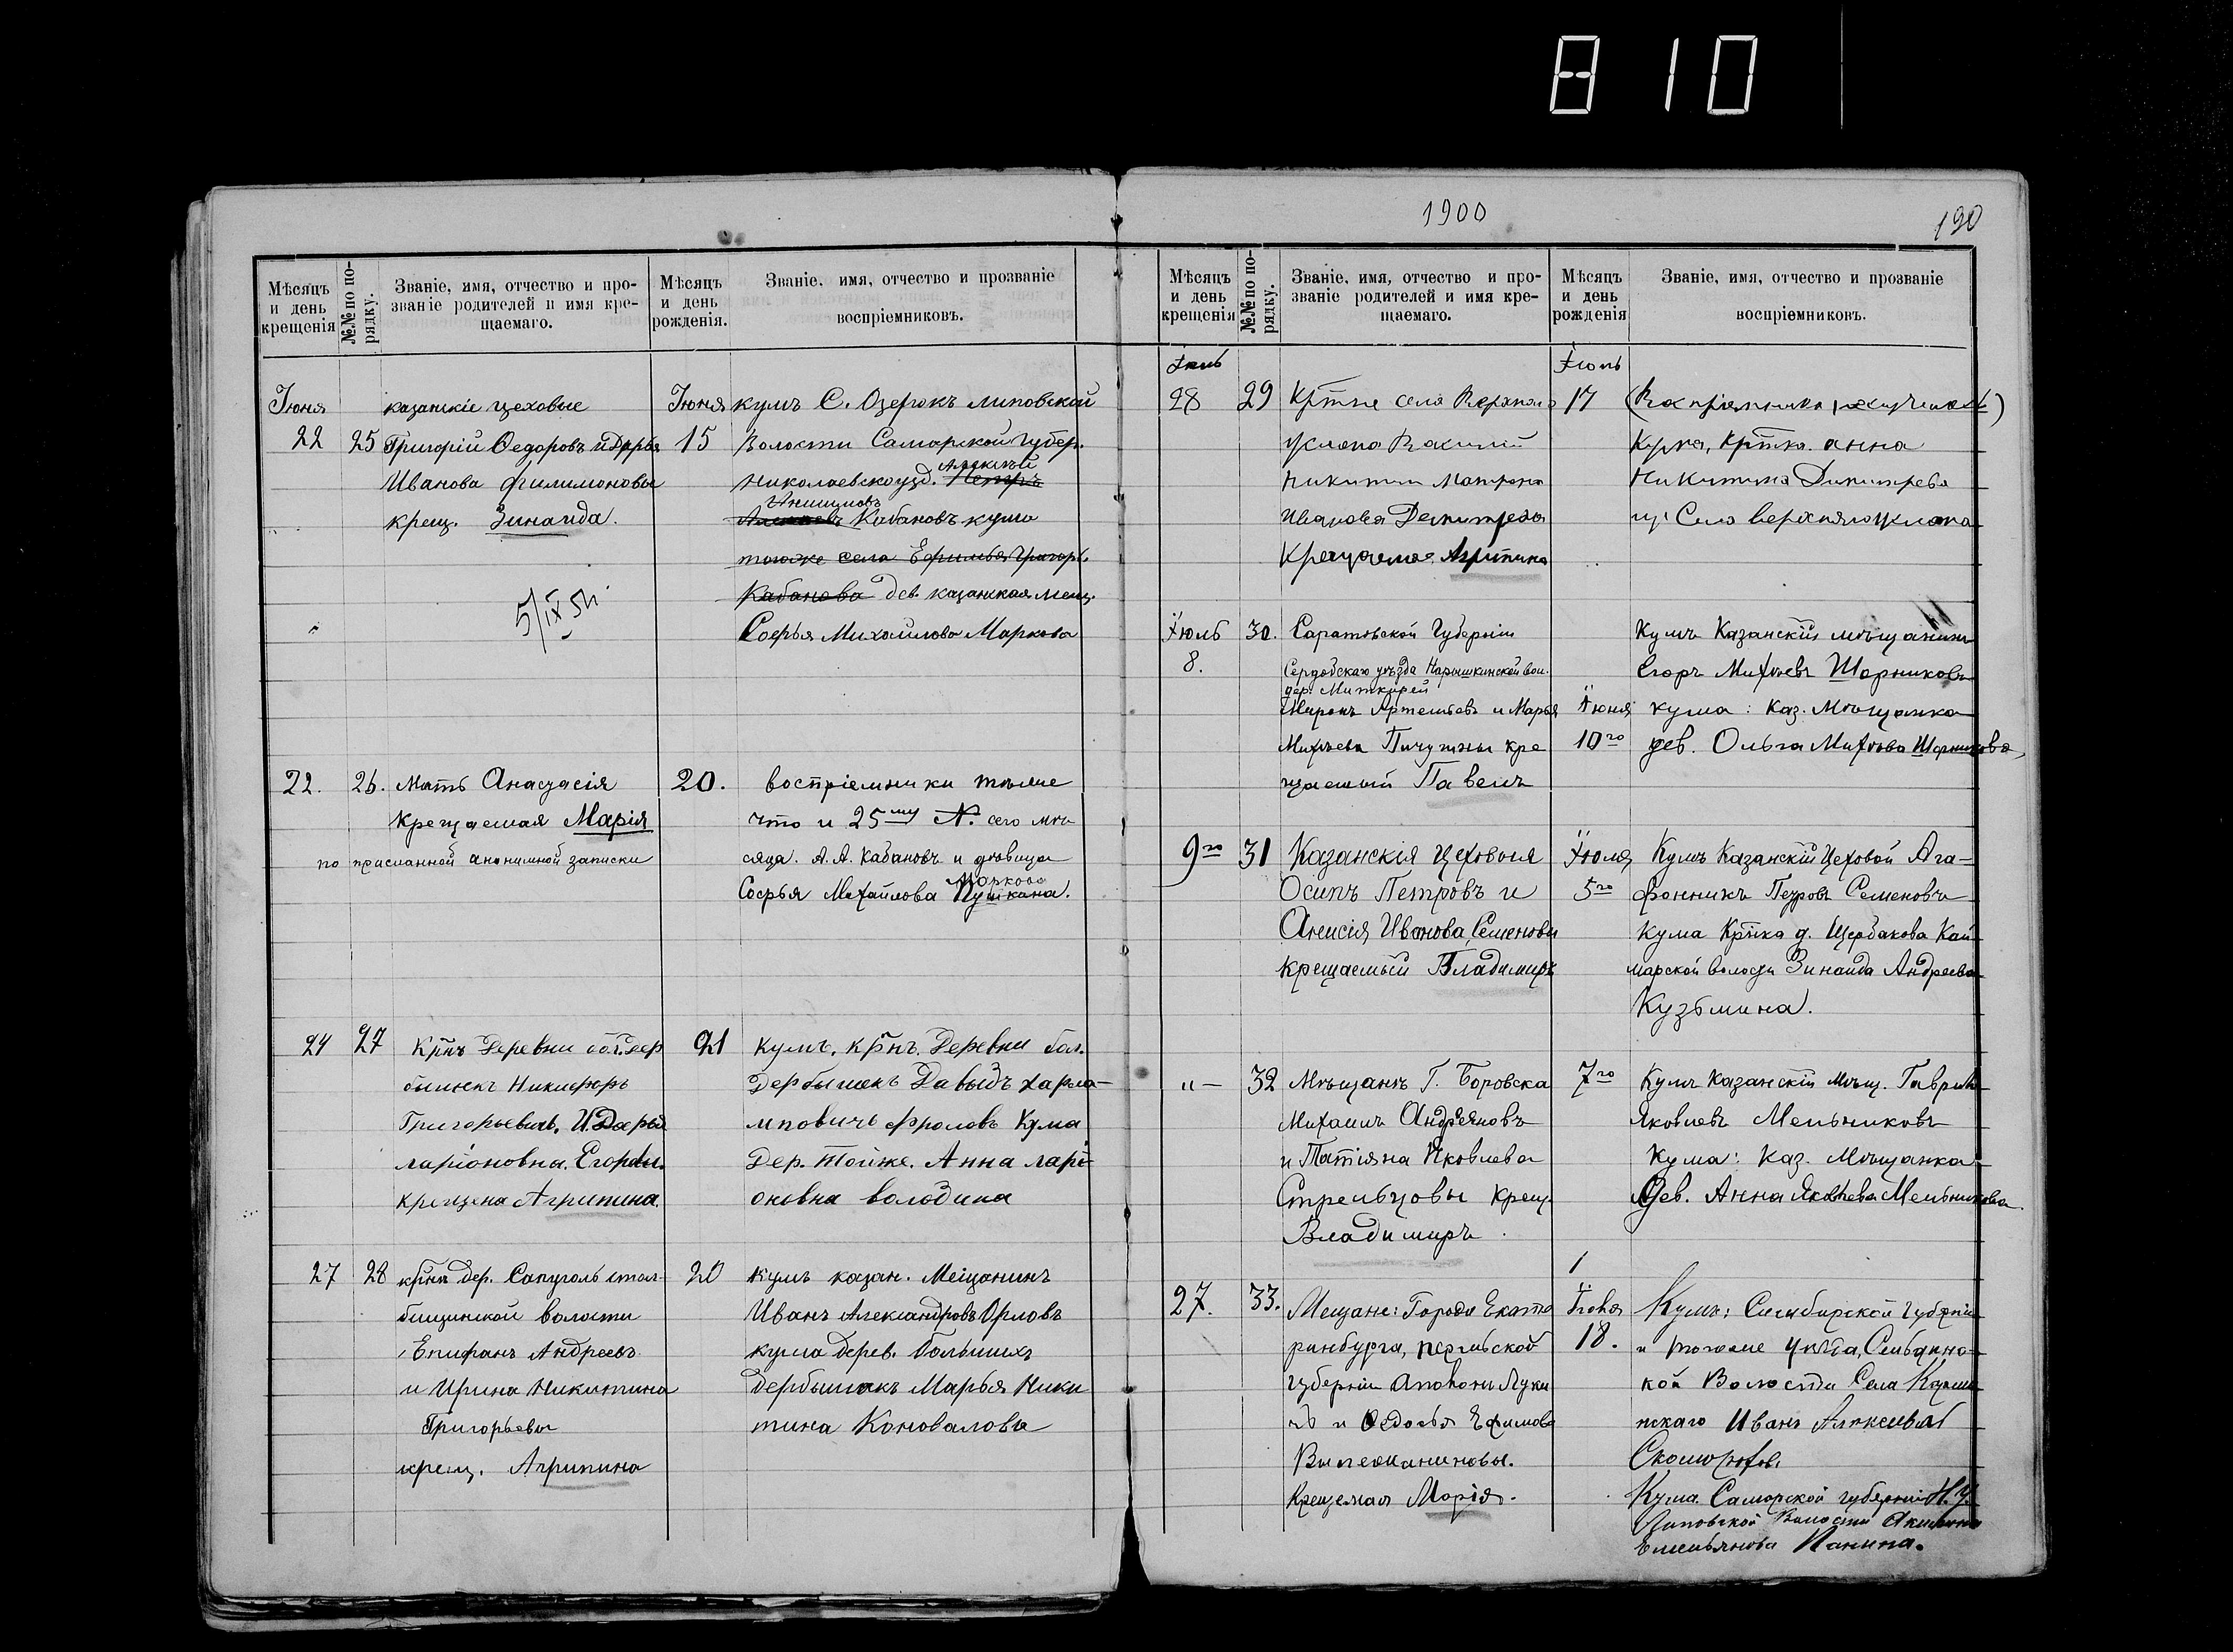 810
1900
190
Мѣсяцъ и день крещенія
№№ по порядку.
Званіе, имя, отчество и про-
званіе родителей и имя кре-
щаемаго.
Мѣсяцъ и день рожденія.
Званіе, имя, отчество и прозваніе
воспріемниковъ.
Іюня казанскіе цеховые Іюня кумъ С. Озерокъ липовской
22 25 Григорій Федоровъ и Дарья 15 Волости Самарской Губер.
Иванова Филимоновы Николаевскоуѣзд. Алексѣй Петръ
крещ. Зинаида. Анисимовъ Кабановъ кума
тогоже села Ефимья Григорь.
Кабанова дев. казанская мещ.
5/IX 54.
Софья Михайлова Маркова
22. 26. Мать Анастасія 20. воспріемники тѣже
крещаемая Марія что и 25му №. сего мѣ-
по присланной анонимной записки сяца. А. А. Кабановъ и дѣвица
Маркова
Софья Михайлова Пушкана.
24 27 Крнъ Деревни бол. Дер 21 кумъ. крнъ. Деревни бол.
бышекъ Никифоръ Дербышекъ Давыдъ Харла-
Григорьевичъ. И Дарья мповичъ Фроловъ Кума
ларіоновна. Егоровы. Дер. тойже. Анна ларі-
крещена Агрипина. оновна володина
27 28 крнъ дер. Сапуголь стол- 20 Кумъ казан. Мещанинъ
бищинской волости Иванъ Александровъ Орловъ
Епифанъ Андреевъ кума дерев. Большихъ
и Ирина Никитина Дербышакъ Марья Ники
Григорьевы тина Коновалова
крещ. Агрипина
Мѣсяцъ и день крещенія
№№ по порядку.
Званіе, имя, отчество и про-
званіе родителей и имя кре-
щаемаго.
Мѣсяцъ и день рожденія
Званіе, имя, отчество и прозваніе
воспріемниковъ.
28 29 Крт не села Верхняго 17
Услона Василій Кума, Крт ка. анна
Никитин Матрона Никитина Димитрева
Иванова Демитрева Села верхняго услона
Крещаемая Агрипина
Іюль 30. Саратовской Губерніи Кумъ Казанскій мѣщанинъ
8. Сердобскаго уѣзда Нарышкинской вол. Егоръ Михѣевъ Шорниковъ
дер. Миткирей
Миронъ Артемьевъ и Марья Іюня кума: Каз. Мѣщанка
Михѣева Пичугины кре 10го дев. Ольга Михѣева Шорникова
щаемый Павелъ
9го 31 Казанскія Цеховыя Іюля Кумъ Казанскій Цеховой Ага-
Осипъ Петровъ и 5го фонникъ Петровъ Семеновъ
Анисія Иванова Семеновы Кума Кртка д. Щербакова Кай
крещаемый Владимиръ марской волости Зинаида Андреева
Кузьмина.
„— 32 Мѣщанъ Г. Боровска 7го Кумъ Казанскій мѣщ. Гаврилъ
Михаилъ Андреяновъ Яковлевъ Мельниковъ
и Татіяна Яковлева Кума: Каз. Мѣщанка
Стрельцовы крещ Дев. Анна Яковлева Мельникова.
Владимиръ
27. 33. Мещане: Города Екате Кумъ: Симбирской Губерніи
ринбурга, пермьской 18. и тогоже Уѣзда,
губерніи кой Волости Села
и Федосья Ефимова Иванъ
Крещемая Марія. Кума. Самарской губерніи Н. У.
Липовской Волости
Емельянова Панина.